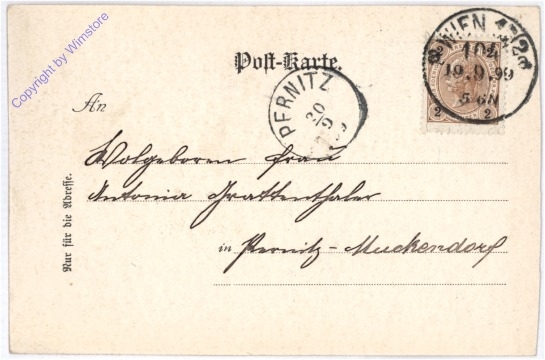 Copyright by Wimstore
Post-Karte.
WIEN
19.9.99
2 2
PERNITZ
20
9
An
Wolgeboren frau
Antonia Grattenthaler
in Pernitz-Muckendorf
Nur für die Adresse.